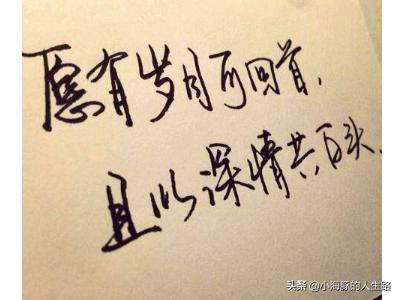 愿有岁月可回首,
且以深情共白头.
头条 @小海豚的人生路